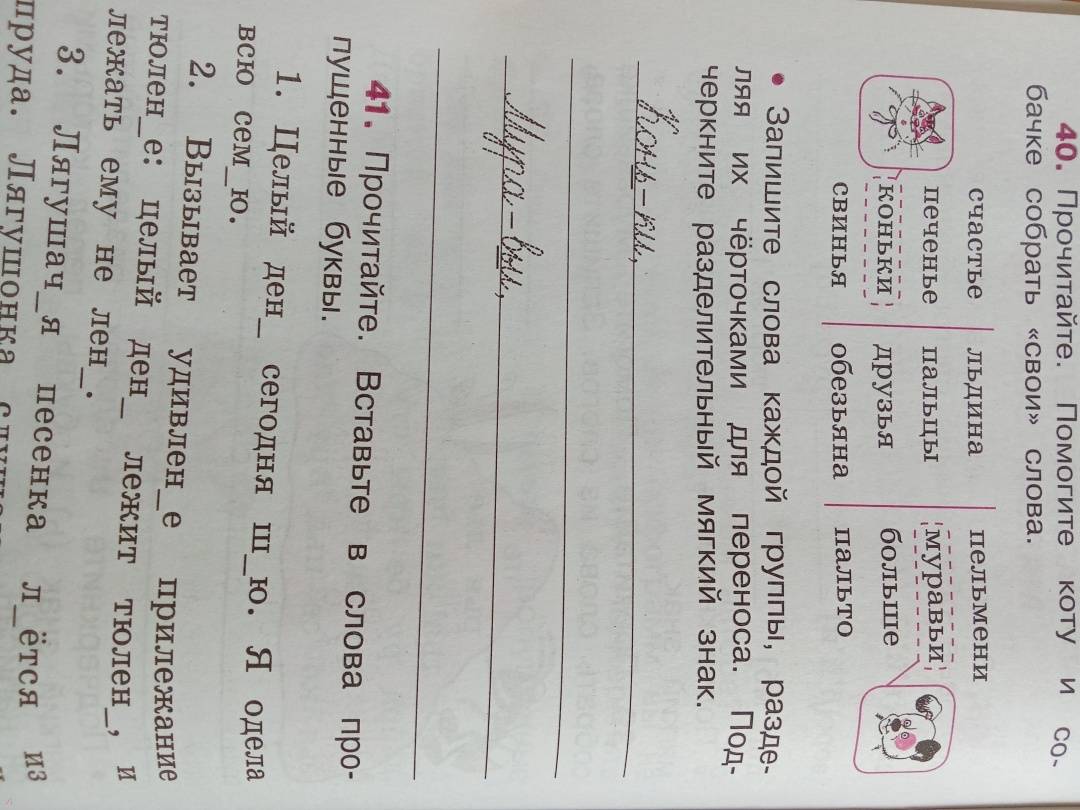 40. Прочитайте. Помогите коту и со-
бачке собрать «свои» слова.
счастье льдина пельмени
печенье пальцы муравьи
коньки друзья больше
свинья обезьяна пальто
• Запишите слова каждой группы, разде-
ляя их чёрточками для переноса. Под-
черкните разделительный мягкий знак.
Конь-ки,
Мура-вьи,
41. Прочитайте. Вставьте в слова про-
пущенные буквы.
1. Целый ден_ сегодня ш_ю. Я одела
всю сем_ю.
2. Вызывает удивлен_е прилежание
тюлен_е: целый ден_ лежит тюлен_, и
лежать ему не лен_.
3. Лягушач_я песенка л_ётся из
пруда. Лягушонка